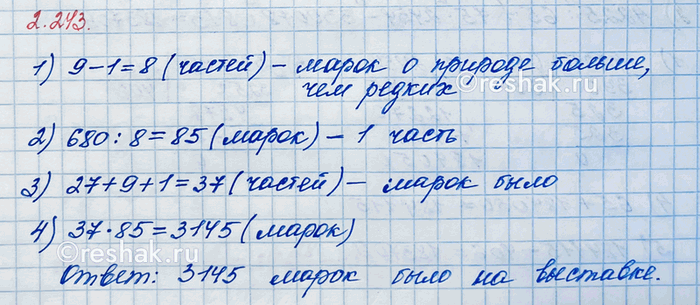 2.243.
1) 9-1=8 (частей) - марок о природе больше,
чем редких
2) 680:8=85 (марок) - 1 часть
3) 27+9+1=37 (частей) - марок было
4) 37·85=3145 (марок)
Ответ: 3145 марок было на выставке.
©reshak.ru
©reshak.ru